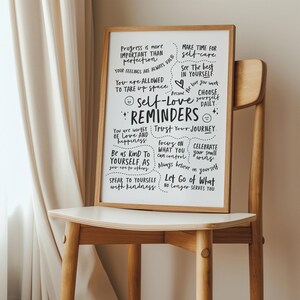 Progress is more
IMPORTANT THAN
perfection
MAKE TIME FOR
self-care
YOUR FEELINGS ARE ALWAYS VALID
See THE BEST
IN YOURSELF
You are ALLOWED
TO TAKE up SPACE
Become the best you want
CHOOSE
YOURSELF
DAILY
Self-Love
REMINDERS
You are WORTHY
OF LOVE AND
happiness
Trust Your JOURNEY
FOCUS ON
WHAT YOU
can control
CELEBRATE
your small
wins
Be as KIND TO
YOURSELF AS
you are to others
Always believe in yourself
SPEAK TO YOURSELF
with kindness
Let Go of WHAT
No longer SERVES YOU